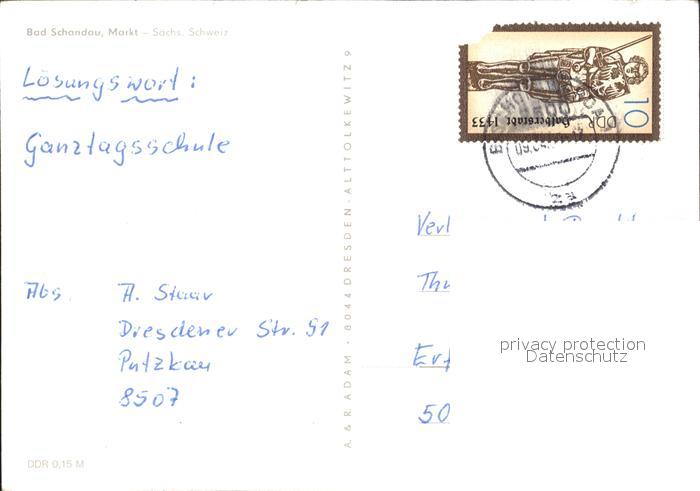 Bad Schandau, Markt – Sächs. Schweiz
Lösungswort:
Ganztagsschule
Abs. A. Staar
Dresdener Str. 91
Putzkau
8507
DDR 0,15 M
A. & R. ADAM · 8044 DRESDEN-ALTTOLKEWITZ 9
10
DDR
Halberstadt 1433
Erf
50
privacy protection
Datenschutz